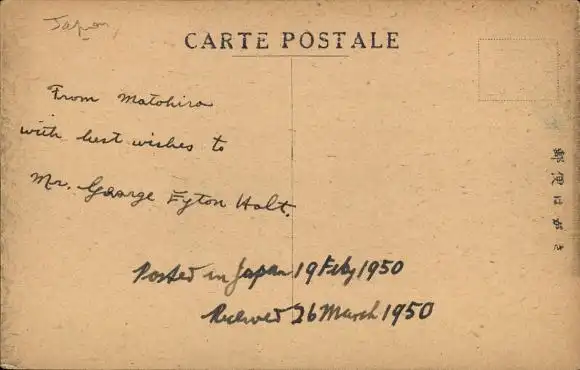 Japan
CARTE POSTALE
From Matohiro
with best wishes to
Mr. George Eyton Holt.
郵便はがき
Posted in Japan 19 Feby 1950
Received 26 March 1950